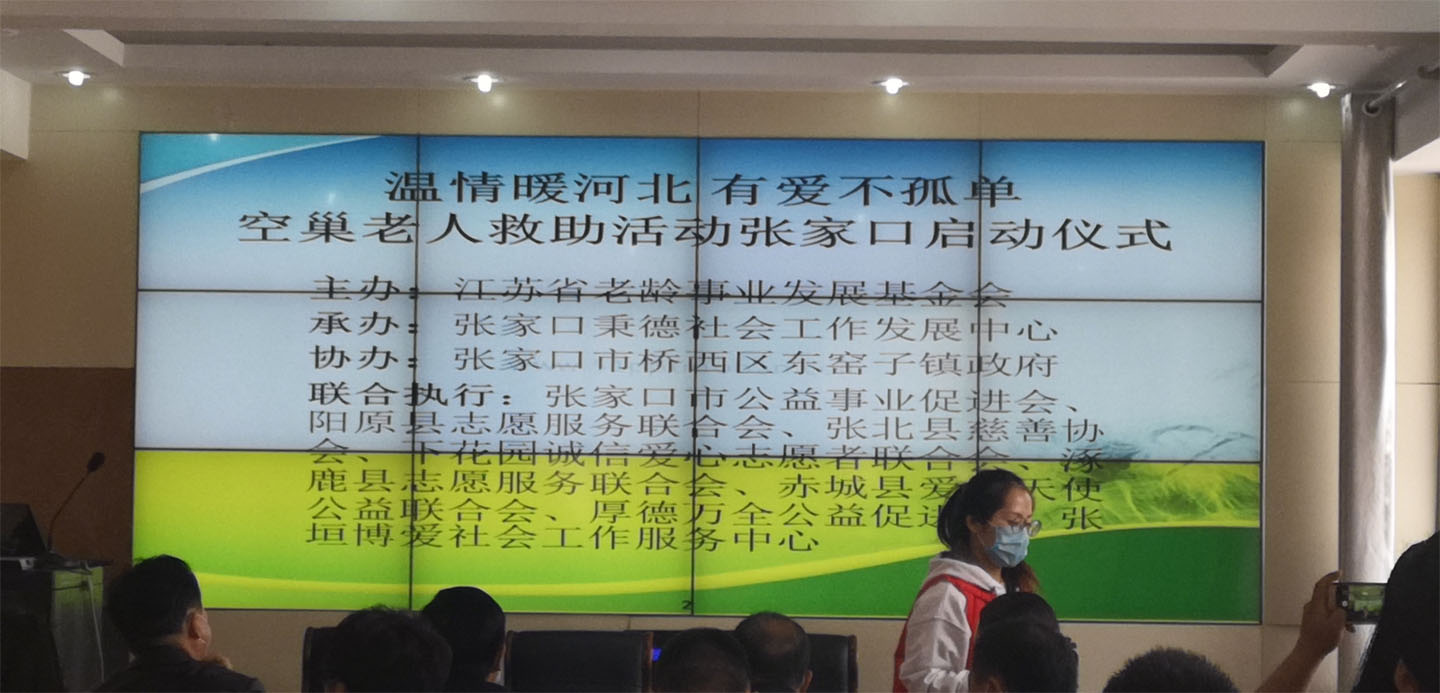 温情暖河北 有爱不孤单
空巢老人救助活动张家口启动仪式
主办：江苏省老龄事业发展基金会
承办：张家口秉德社会工作发展中心
协办：张家口市桥西区东窑子镇政府
联合执行：张家口市公益事业促进会、
阳原县志愿服务联合会、张北县慈善协
会、下花园诚信爱心志愿者联合会、涿
鹿县志愿服务联合会、赤城县爱 天使
公益联合会、厚德万全公益促进 张
垣博爱社会工作服务中心
2